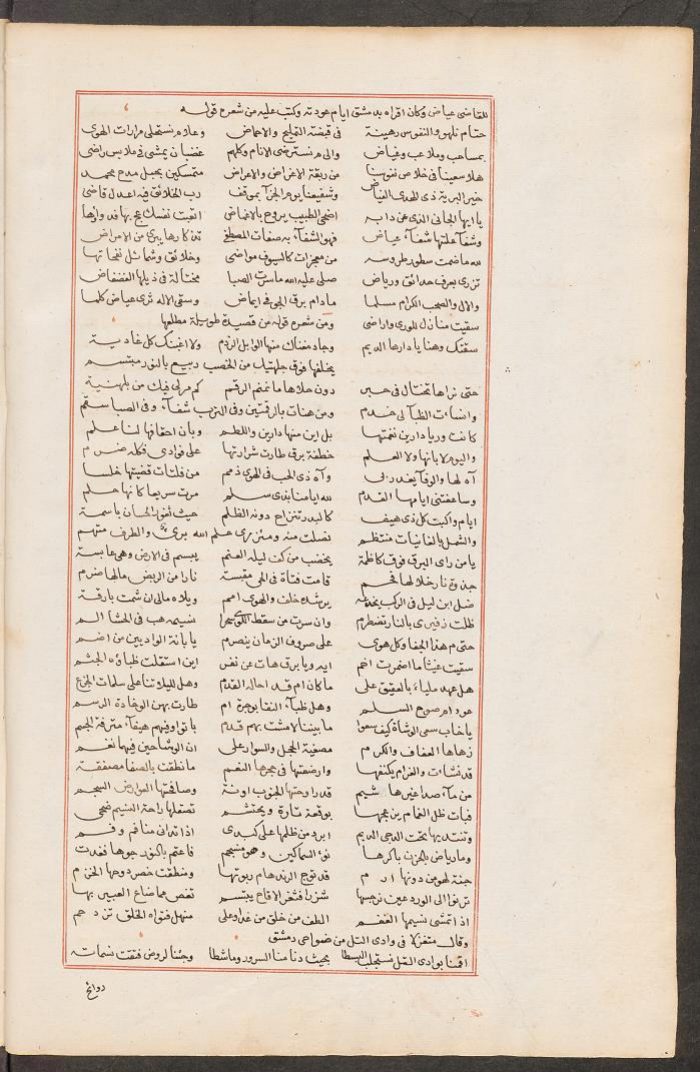 للقاضى عياض وكان اقراه بدمشق ايام عودته وكتب عليه من شعره قوله
حتام نلهو والنفوس رهينة فى قبضة التقبيح والاحماض وعلام نستحلى مرارات الهوى
بمساحب وملاعب وغياض والى م نسترضى الانام وكلهم غضبان يمشى فى ملابس راضى
هلا سعينا فى خلاص نفوسنا من ربقة الاغراض والاعراض متمسكين بحبل مدح محمد
خير البرية ذى الهدى الفياض وشفيعنا يوم الجزآ بموقف رب الخلائق فيه اعدل قاضى
يا ايها الجانى الذى عن دابه اضحى الطبيب يروح بالانغاض اتعبت نفسك عج بها فدوآؤها
وشفآ علتها شفآء عياض فهو الشفآء به صفات المصطفى تذكارها يبرى من الامراض
لله ما ضمت سطور طروسه من معجزات كالسيوف مواضى وخلائق وشمائل نفحاتها
تزرى بعرف حدائق ورياض صلى عليه الله ما سرت الصبا مختالة فى ذيلها الفضفاض
والال والصحب الكرام مسلما ما دام برق الجو فى ايماض وسقى الاله ثرى عياض كلما
سقيت منازل للورى واراضى ومن شعره قوله من قصيدة طويلة مطلعها
سقتك وهنا يا دارها الديم وجاد مغناك منها الوابل الرذم ولا اغبتك كل غادية
يخلفها فوق جلهتيك من الخصب ربيع بالنور مبتسم
حتى نراها تختال فى حبر دون حلاها ما نمنم الرقم كم مر لى فيك من بلهنية
وانسآت الظبآ لى خدم ومن هنات بالرقمتين وفى الترب شفآء وفى الصبا سقم
كانت وريا دارين نغمتها بل اين منها دارين واللطم وبان احقافها لنا علم
واليوم لا بانها ولا العلم خطفة برق طارت شرارتها على فوادى فكله ضرم
آه لها والوفآ يغدر بى وآه ذى الحب فى الهوى ذمم من فلتات قضيتها خلسا
وساعفتنى ايامها القدم لله ايامنا بذى سلم مرت سريعا كانها حلم
ايام واكبت كل ذى هيف كالبدر تنزاح دونه الظلم حيث ثغور الحسان باسمة
والشمل بالغانيات منتظم
يا من راى البرق فوق كاظمة يخضب من كف ليله العنم يبسم فى الارض وهى عابسة
جذوة نار خلالها فحم قامت فتاة فى الحى مقبسة نارا من الربض مالها ضرم
ضل ابن ليل فى الركب يخدعه يرشده خلف والهوى امم ويلاه مالى ان شمت بارقة
ظلت زفيرى بالنار تضطرم وان سرت من سقط اللوى سحرا نسيمه هب فى الحشا الم
حتى م هذا الجفا وكل هوى على صروف الزمان ينصرم يا بانة الواديين من اضم
سقيت غيثا ما اخضرت اضم ايه ويا برق هات عن نفر اين استقلت ظباؤه الجثم
هل عهد ليلاء بالعقيق على ما كان ام قد احاله القدم وهل لليلاتنا على سلمات الجزع
عود ام صوح السلم وهل ظبآء النقا بوجرة ام طارت بهن الوخادة الرسم
يا خاب سعى الوشاة كيف سعوا ما بيننا لا مشت بهم قدم با توا وفيهم هيفآء مترفة الجسم
زهاها العفاف والكرم مصغية الحجل والسوار على ان الوشاحين فيها نغم
قد نشات والغرام يكنفها وارضعتها فى حجرها النعم ما نطقت بالصفا مصفقة
من مآء صدا غيرها شيم قد راوحتها الجنوب اونة وصافحتها العوارض السجم
فبات ظل الغمام يزعجها بوقعه تارة ويحتشم تصقلها راحة النسيم ضحى
وتنتديها تحت الدجى الديم ابرد من ظلمها على كبدى اذا تدانى منا فم وفم
وما رياض بالحزن باكرها نوء السماكين وهو منسجم فاعتم بالنور جوها فغدت
جنة لهو من دونها ارم قد توج الرند هام ربوتها ومنطقت خصر دوحها الحزم
ترنو الى الورد عين نرجسها شزرا فثغر الاقاح يبتسم تغص مما ضاع العبير بها
اذا تمشى نسيمها الفغم الطف من خلق من غدا وعلى منهل فتواه الخلق تزدحم
وقال متغزلا فى وادى التل من ضواحى دمشق
اقمنا بوادى التل نستجلب البسطا بحيث دنا منا السرور وما شطا وجئنا لروض فتقت نسماته
دوايح